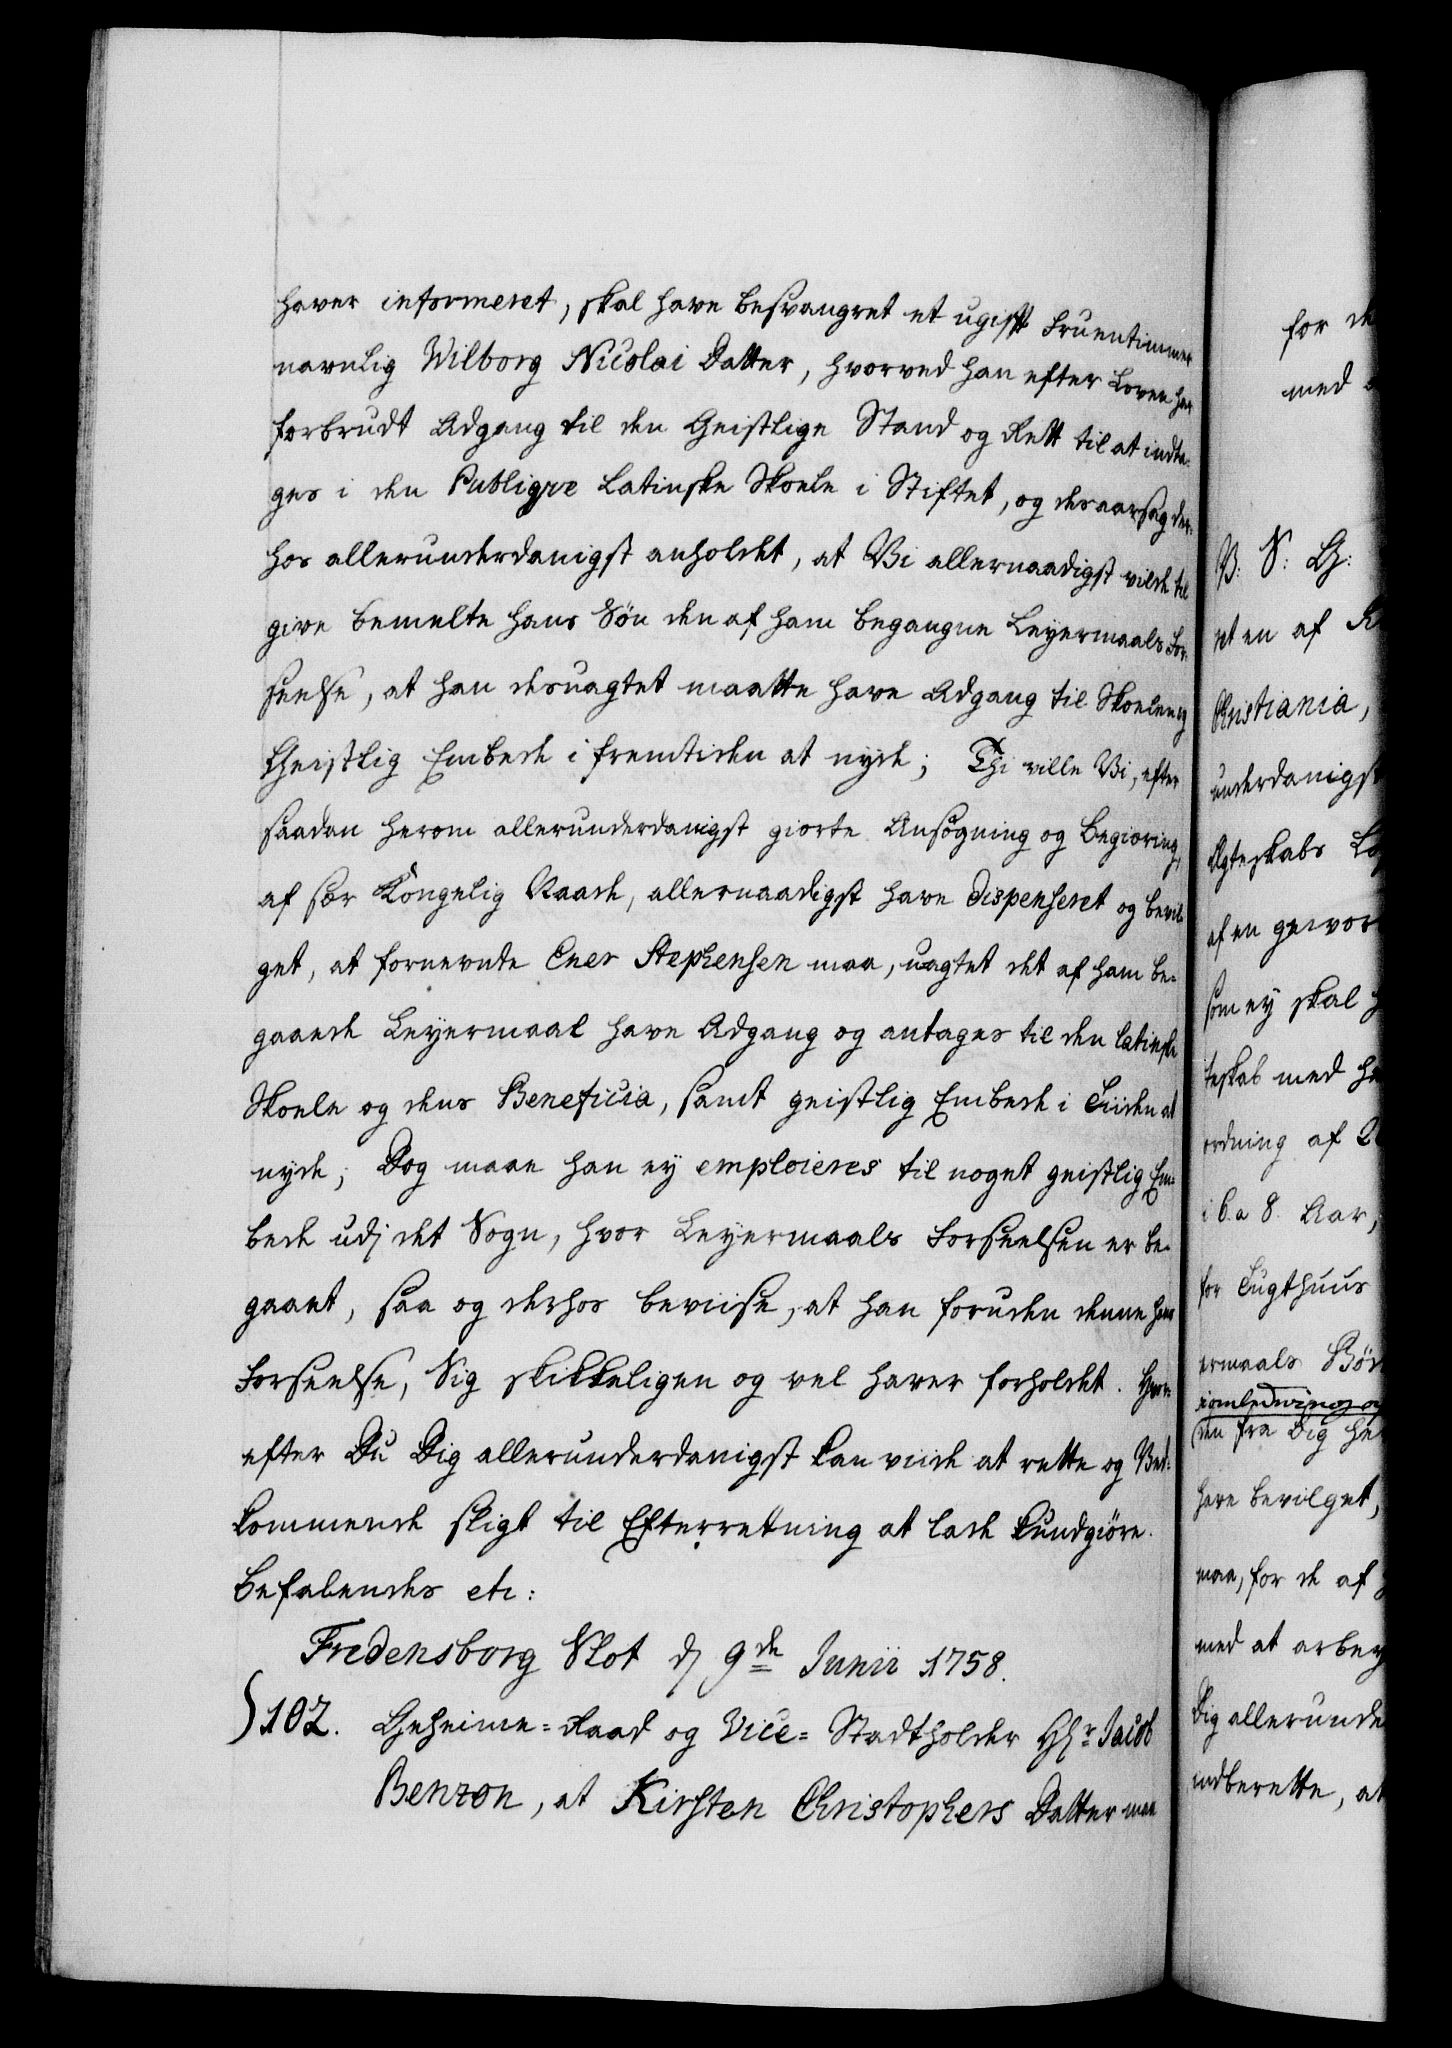 haver informeret, skal have besvangret et ugift Fruentimmer
navnlig Wilborg Nicolai Datter, hvorved han efter Loven har
forbrudt Adgang til den Geistlige Stand og Rett til at indta-
ges i den Publiqve Latinske Skoele i Stiftet, og desaarsag der-
hos allerunderdanigst anholdet, at Vi allernaadigst vilde til
give bemelte hans Søn den af ham begangne Leyermaals For-
seelse, at han desuagtet maatte have Adgang til Skoelen og
Geistlig Embede i fremtiden at nyde; Thi ville Vi, efter
saadan herom allerunderdanigst giorte Ansøgning og Begiering,
af sær Kongelig Naade, allernaadigst have dispenseret og bevil-
get, at fornevnte Ener Stephensen maa, uagtet det af ham be-
gaaede Leyermaal have Adgang og antages til den latinske
Skoele og dens Beneficia, samt geistlig Embede i Tiiden at
nyde; Dog maae han ey emploieres til noget geistlig Em-
bede udj det Sogn, hvor Leyermaals Forseelsen er be-
gaaet, saa og derhos beviise, at han foruden denne hans
Forseelse, Sig skikkeligen og vel haver forholdet. Hvor-
efter Du Dig allerunderdanigst kan viide at rette og Ved-
kommende sligt til Efterretning at lade kundgiøre.
Befalendes etc:
Fredensborg Slot d 9de Junii 1758.
102. Geheime-Raad og Vice-Stadtholder Hr Jacob
Benzon, at Kirsten Christophers Datter maa
for de
med
V: S: G:
et en af
Christiania,
underdanigst
Ægteskabs
af en
som ey skal
teskab med
ordning af
i 6 a 8. Aar,
for Tugthuus
ermaals
den fra Dig
have bevilget,
maa, for de af
med at
Dig allerunde
indberette, at